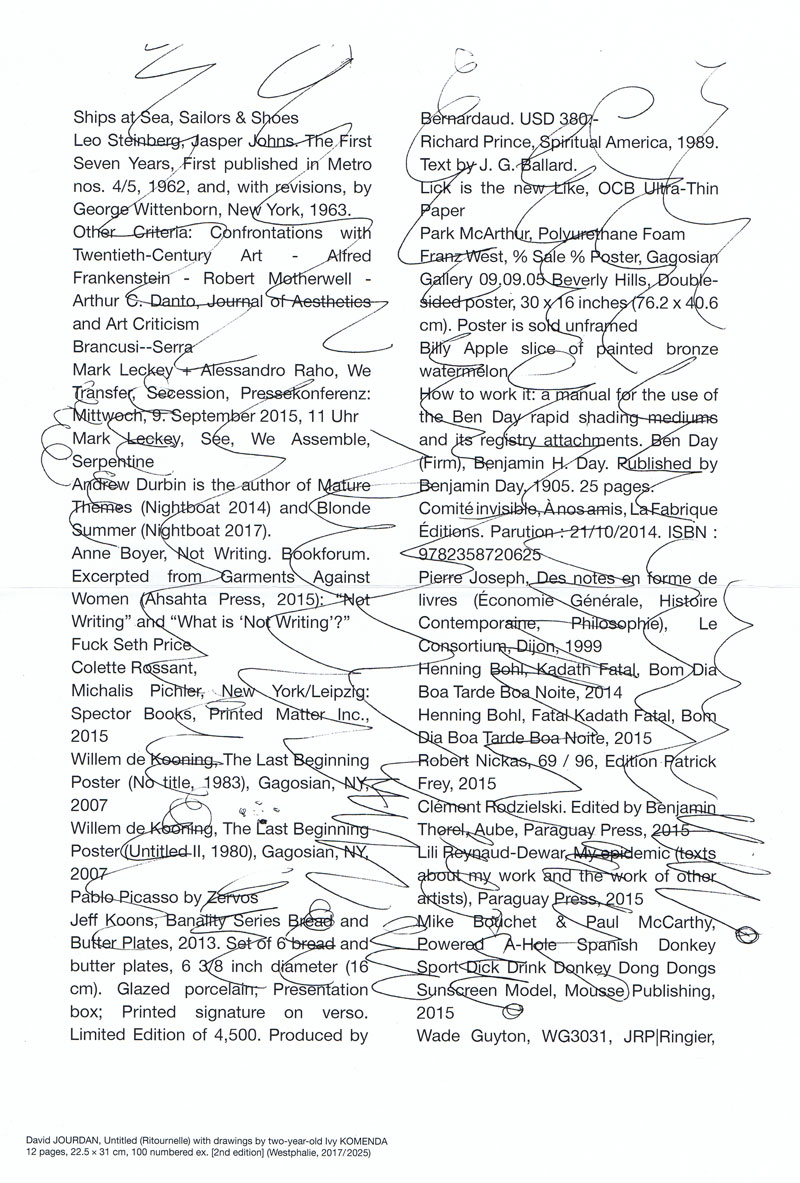 Ships at Sea, Sailors & Shoes
Leo Steinberg, Jasper Johns. The First
Seven Years, First published in Metro
nos. 4/5, 1962, and, with revisions, by
George Wittenborn, New York, 1963.
Other Criteria: Confrontations with
Twentieth-Century Art - Alfred
Frankenstein - Robert Motherwell -
Arthur C. Danto, Journal of Aesthetics
and Art Criticism
Brancusi--Serra
Mark Leckey + Alessandro Raho, We
Transfer, Secession, Pressekonferenz:
Mittwoch, 9. September 2015, 11 Uhr
Mark Leckey, See, We Assemble,
Serpentine
Andrew Durbin is the author of Mature
Themes (Nightboat 2014) and Blonde
Summer (Nightboat 2017).
Anne Boyer, Not Writing. Bookforum.
Excerpted from Garments Against
Women (Ahsahta Press, 2015): “Not
Writing” and “What is ‘Not Writing’?”
Fuck Seth Price
Colette Rossant,
Michalis Pichler, New York/Leipzig:
Spector Books, Printed Matter Inc.,
2015
Willem de Kooning, The Last Beginning
Poster (No title, 1983), Gagosian, NY,
2007
Willem de Kooning, The Last Beginning
Poster(Untitled II, 1980), Gagosian, NY,
2007
Pablo Picasso by Zervos
Jeff Koons, Banality Series Bread and
Butter Plates, 2013. Set of 6 bread and
butter plates, 6 3/8 inch diameter (16
cm). Glazed porcelain; Presentation
box; Printed signature on verso.
Limited Edition of 4,500. Produced by
Bernardaud. USD 380,-
Richard Prince, Spiritual America, 1989.
Text by J. G. Ballard.
Lick is the new Like, OCB Ultra-Thin
Paper
Park McArthur, Polyurethane Foam
Franz West, % Sale % Poster, Gagosian
Gallery 09.09.05 Beverly Hills, Double-
sided poster, 30 x 16 inches (76.2 x 40.6
cm). Poster is sold unframed
Billy Apple slice of painted bronze
watermelon
How to work it: a manual for the use of
the Ben Day rapid shading mediums
and its registry attachments. Ben Day
(Firm), Benjamin H. Day. Published by
Benjamin Day, 1905. 25 pages.
Comité invisible, À nos amis, La Fabrique
Éditions. Parution : 21/10/2014. ISBN :
9782358720625
Pierre Joseph, Des notes en forme de
livres (Économie Générale, Histoire
Contemporaine, Philosophie), Le
Consortium, Dijon, 1999
Henning Bohl, Kadath Fatal, Bom Dia
Boa Tarde Boa Noite, 2014
Henning Bohl, Fatal Kadath Fatal, Bom
Dia Boa Tarde Boa Noite, 2015
Robert Nickas, 69 / 96, Edition Patrick
Frey, 2015
Clément Rodzielski. Edited by Benjamin
Thorel, Aube, Paraguay Press, 2015
Lili Reynaud-Dewar, My epidemic (texts
about my work and the work of other
artists), Paraguay Press, 2015
Mike Bouchet & Paul McCarthy,
Powered A-Hole Spanish Donkey
Sport Dick Drink Donkey Dong Dongs
Sunscreen Model, Mousse Publishing,
2015
Wade Guyton, WG3031, JRP|Ringier,
David JOURDAN, Untitled (Ritournelle) with drawings by two-year-old Ivy KOMENDA
12 pages, 22.5 × 31 cm, 100 numbered ex. [2nd edition] (Westphalie, 2017/2025)